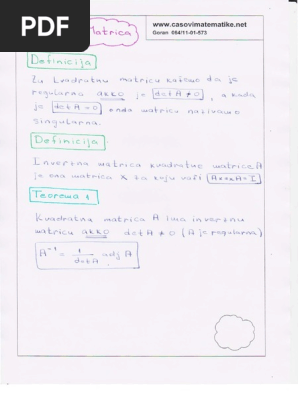 PDF
Matrica
www.casovimatematike.net
Goran 064/11-01-573
Definicija
Za kvadratnu matricu kažemo da je
regularna akko je det A ≠ 0, a kada
je det A = 0 onda matricu nazivamo
singularna.
Definicija
Inverzna matrica kvadratne matrice A
je ona matrica X za koju važi
Teorema 1
Kvadratna matrica A ima inverznu
matricu akko det A ≠ 0 (A je regularna)
A⁻¹ = 1/det A adj A